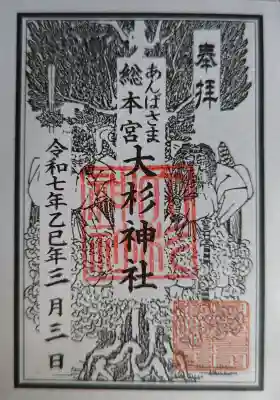 奉拝
あんばさま
総本宮
大杉神社
令和七年乙巳年三月三日